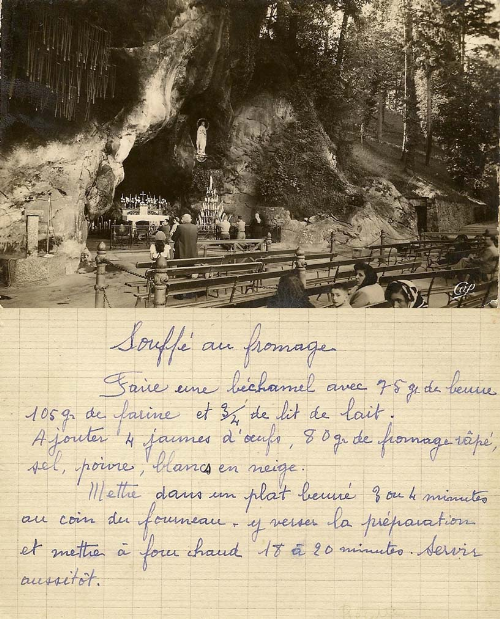 Cap
Soufflé au fromage
Faire une béchamel avec 75 gr de beurre
105 gr de farine et 3/4 de lit de lait.
Ajouter 4 jaunes d'œufs, 80 gr de fromage râpé,
sel, poivre, blancs en neige.
Mettre dans un plat beurré 3 ou 4 minutes
au coin du fourneau. y verser la préparation
et mettre à four chaud 18 à 20 minutes. Servir
aussitôt.